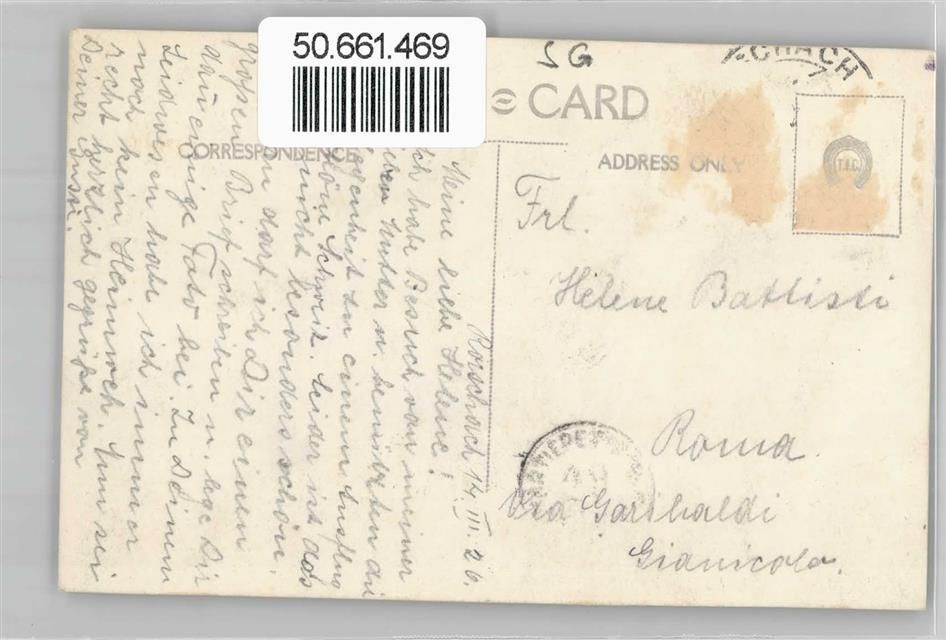 50.661.469
SG
CARD
CORRESPONDENCE
ADDRESS ONLY
T.I.C.
Rorschach 14. III. 26.
Meine liebe Helene!
Ich habe Besuch von meiner
Mutter u. benützten die
zu einem Ausflug
Schweiz. Leider ist das
nicht besonders schön.
darf ich Dir einen
grossen Brief schreiben u. lege Dir
einige Foto bei. In Deinem
hatte ich immer
noch kein Heimweh. Nun sei
recht herzlich gegrüßt von
Deiner
Frl.
Helene Battisti
Roma.
Via Garibaldi
Gianicolo.